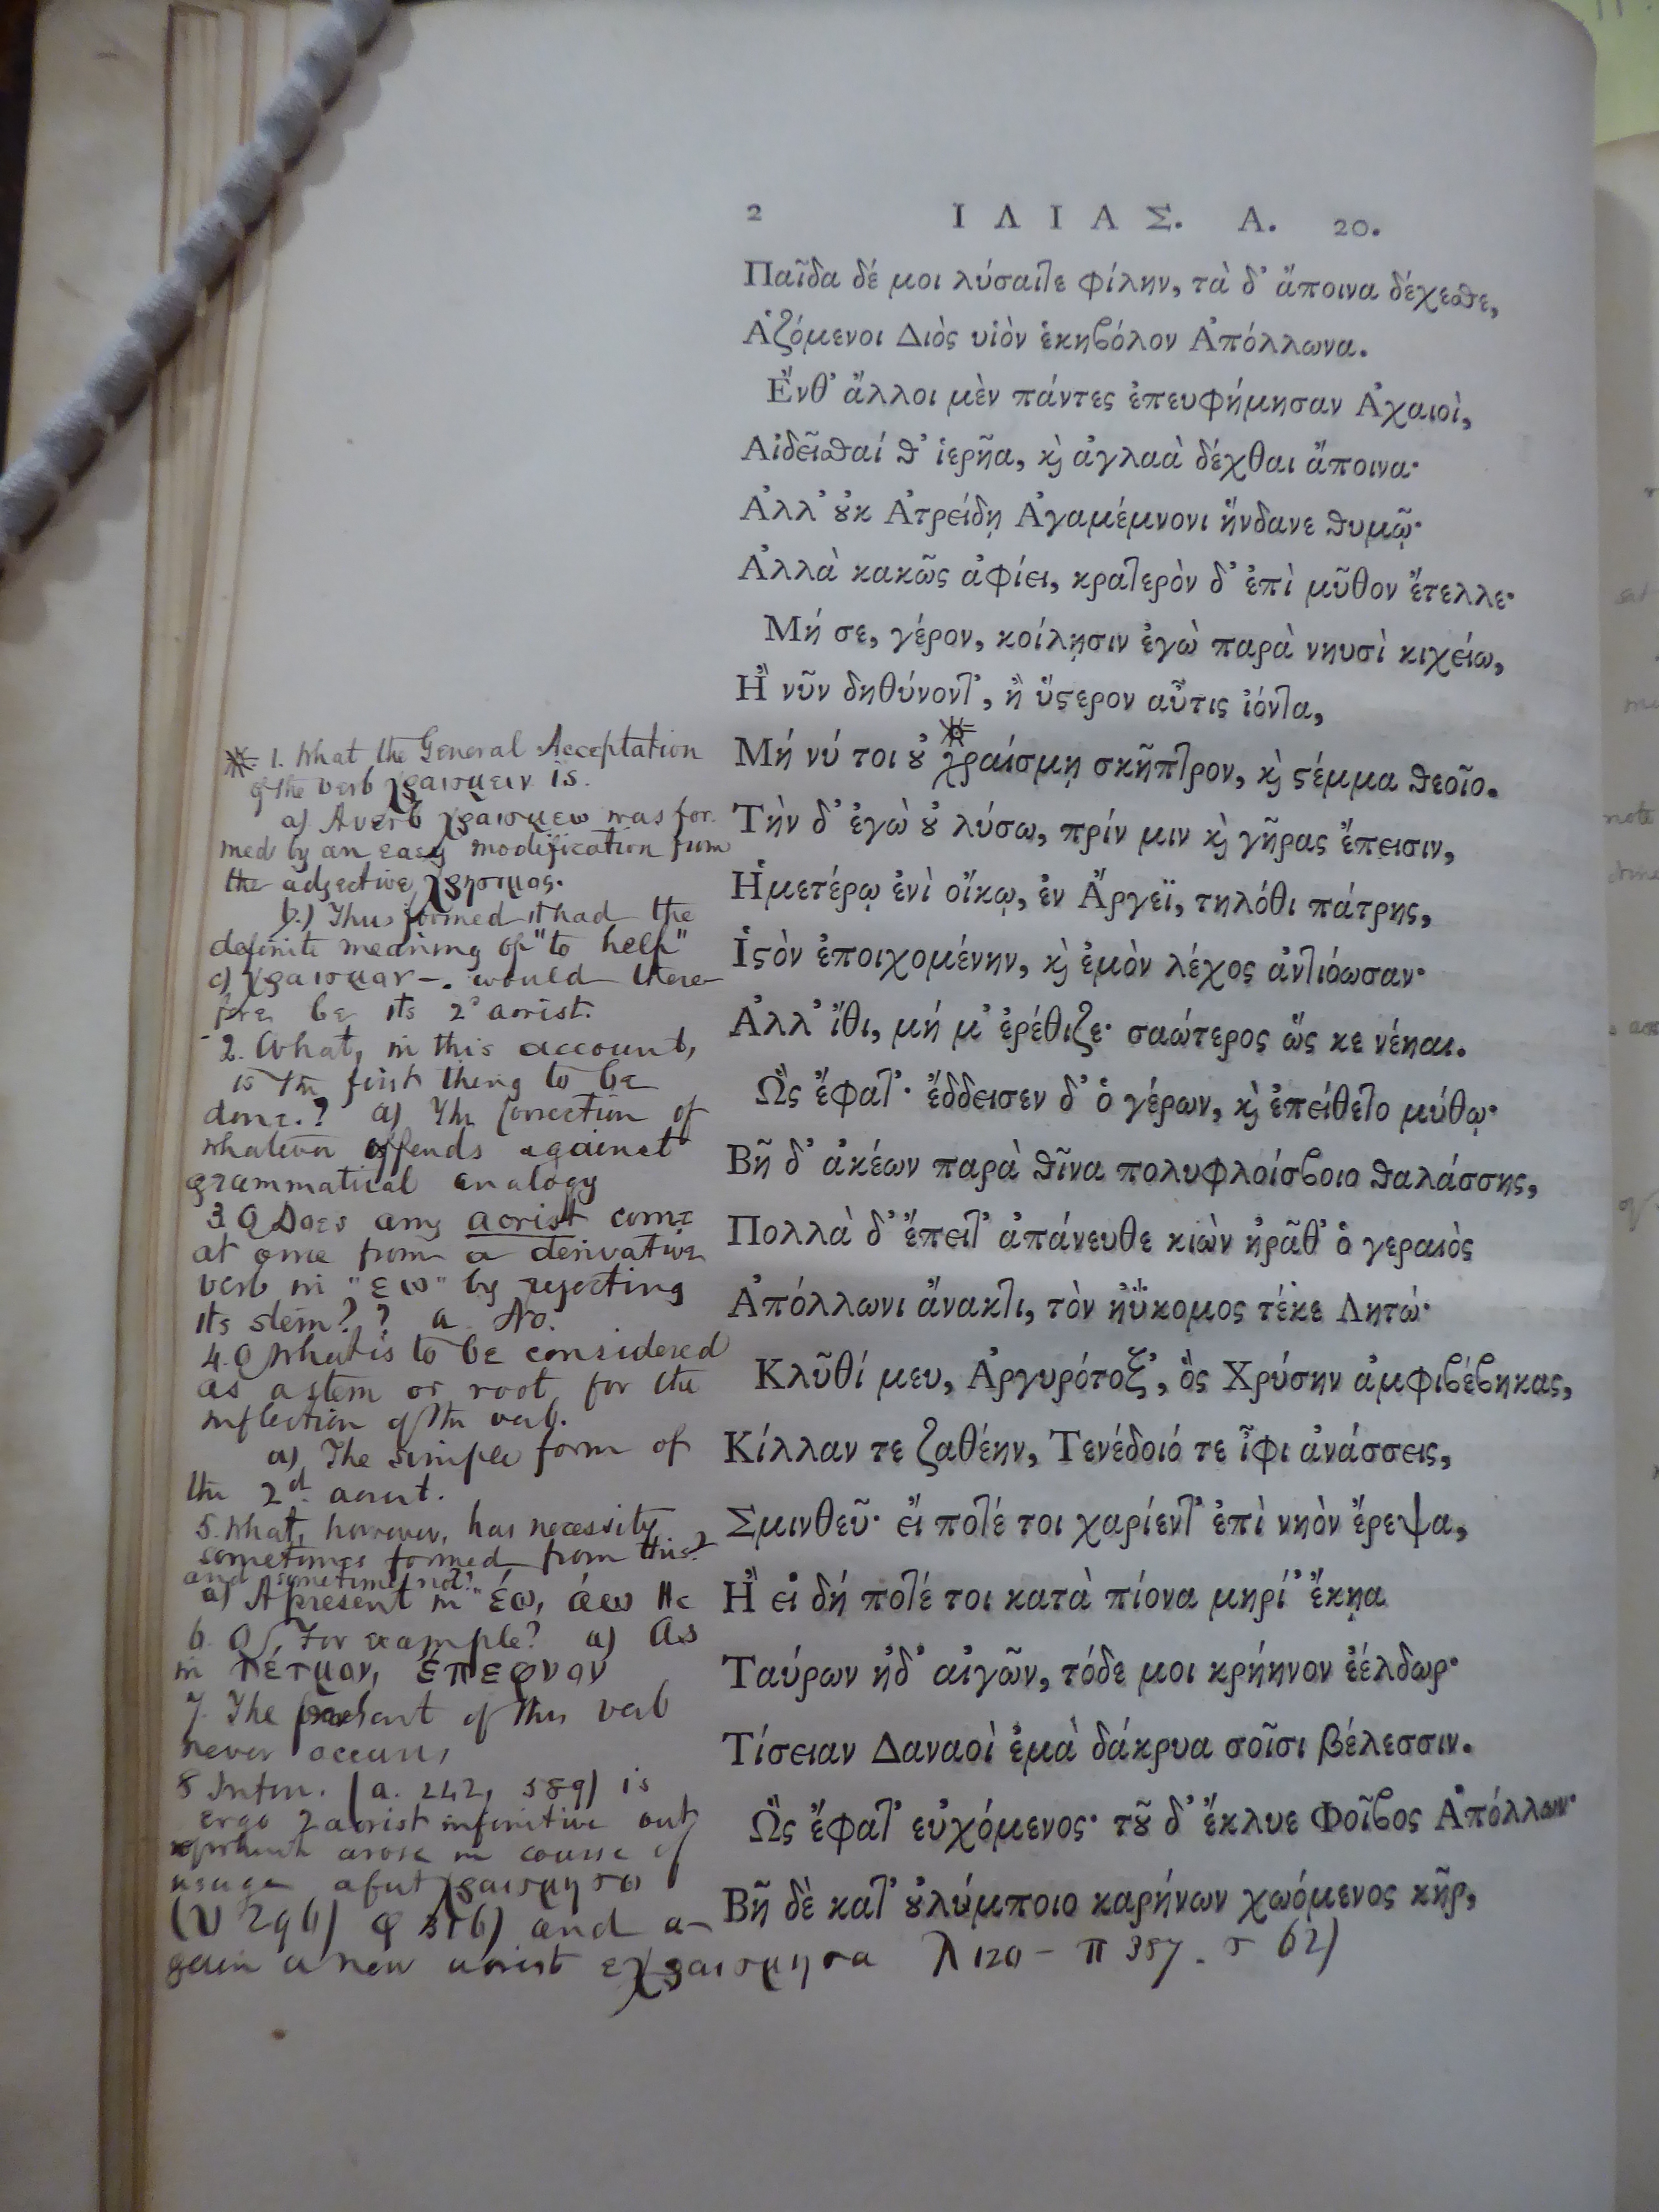 2 ΙΛΙΑΣ. Α. 20.
Παῖδα δέ μοι λύσατε φίλην, τὰ δ᾽ ἄποινα δέχεσθε,
Ἁζόμενοι Διὸς υἱὸν ἑκηβόλον Ἀπόλλωνα.
Ἔνθ᾽ ἄλλοι μὲν πάντες ἐπευφήμησαν Ἀχαιοὶ,
Αἰδεῖσθαί θ᾽ ἱερῆα, ϗ ἀγλαὰ δέχθαι ἄποινα·
Ἀλλ᾽ ȣ̓κ Ἀτρείδῃ Ἀγαμέμνονι ἥνδανε θυμῷ·
Ἀλλὰ κακῶς ἀφίει, κρατερὸν δ᾽ ἐπὶ μῦθον ἔτελλε·
Μή σε, γέρον, κοίλῃσιν ἐγὼ παρὰ νηυσὶ κιχείω,
Ἢ νῦν δηθύνοντ᾽, ἢ ὕϛερον αὖτις ἰόντα,
Μή νύ τοι ȣ̓ χραίσμῃ σκῆπτρον, ϗ ϛέμμα θεοῖο.
Τὴν δ᾽ ἐγὼ ȣ̓ λύσω, πρίν μιν ϗ γῆρας ἔπεισιν,
Ἡμετέρῳ ἐνὶ οἴκῳ, ἐν Ἄργεϊ, τηλόθι πάτρης,
Ἱϛὸν ἐποιχομένην, ϗ ἐμὸν λέχος ἀντιόωσαν·
Ἀλλ᾽ ἴθι, μή μ᾽ ἐρέθιζε· σαώτερος ὥς κε νέηαι.
Ὣς ἔφατ᾽· ἔδδεισεν δ᾽ ὁ γέρων, ϗ ἐπείθετο μύθῳ·
Βῆ δ᾽ ἀκέων παρὰ θῖνα πολυφλοίσβοιο θαλάσσης,
Πολλὰ δ᾽ ἔπειτ᾽ ἀπάνευθε κιὼν ἠρᾶθ᾽ ὁ γεραιὸς
Ἀπόλλωνι ἄνακτι, τὸν ἠΰκομος τέκε Λητώ·
Κλῦθί μευ, Ἀργυρότοξ᾽, ὃς Χρύσην ἀμφιβέβηκας,
Κίλλαν τε ζαθέην, Τενέδοιό τε ἶφι ἀνάσσεις,
Σμινθεῦ· εἴ ποτέ τοι χαρίεντ᾽ ἐπὶ νηὸν ἔρεψα,
Ἢ εἰ δή ποτέ τοι κατὰ πίονα μηρί᾽ ἔκηα
Ταύρων ἠδ᾽ αἰγῶν, τόδε μοι κρήηνον ἐέλδωρ·
Τίσειαν Δαναοὶ ἐμὰ δάκρυα σοῖσι βέλεσσιν.
Ὣς ἔφατ᾽ εὐχόμενος· τȣ͂ δ᾽ ἔκλυε Φοῖβος Ἀπόλλων·
Βῆ δὲ κατ᾽ ȣ̓λύμποιο καρήνων χωόμενος κῆρ,
※. 1. What the General Acceptation
of the verb χραισμειν is.
a) A verb χραισμεω was for
med by an easy modification from
the adjective χρησιμος.
b.) Thus formed it had the
definite meaning of "to help"
c) χραισμαν—. would there
fore be its 2° aorist.
2. What, in this account,
is the first thing to be
done.? a) The Correction of
whatever offends against
grammatical analogy
3. Q Does any aorist come
at once from a derivative
verb in "εω" by rejecting
its stem?? a No.
4. Q What is to be considered
as a stem or root for the
inflection of the verb.
a) The simple form of
the 2d. aorist.
5. What, however, has necessity
sometimes formed from this?
and sometimes not?
a) A present in "έω, άω &c
6. Q, For example? a) As
in τέτμον, έπεφνον
7. The present of this verb
never occurs,
8 Infin. (a. 242, 589) is
ergo 2 aorist infinitive out
of which arose in course of
usage a fut χραισμησω
(υ 296) φ 316) and a-
gain a new aorist εχραισμησα λ 120 — π 357. σ 62)